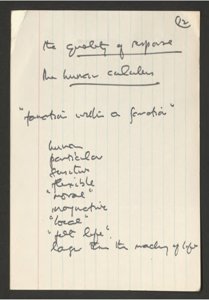 12
the quality of response
the human calculus
"function within a function"
human
particular
sensitive
flexible
"moral"
imaginative
"local"
"felt life"
larger than the making of life